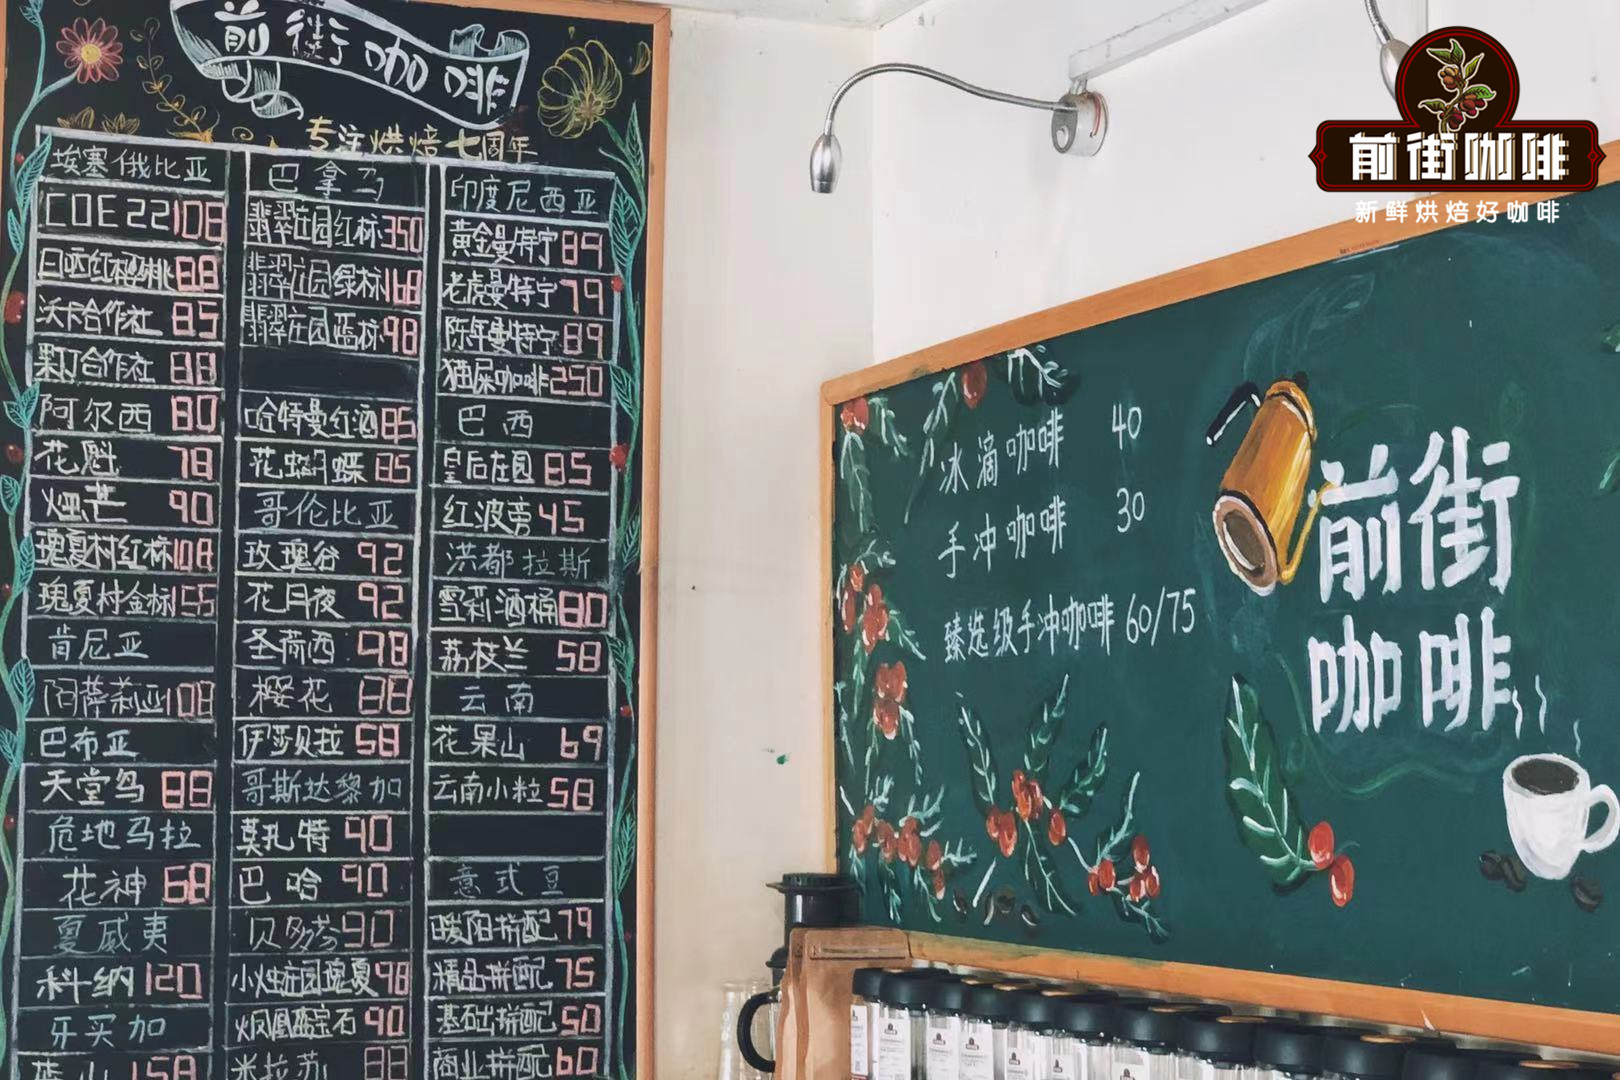 前街咖啡
专注烘焙七周年
埃塞俄比亚
COE22 108
日晒红樱桃 88
沃卡合作社 85
果丁合作社 88
阿尔西 80
花魁 78
烟芒 90
瑰夏村红标 108
瑰夏村金标 155
肯尼亚
阿萨莉亚 108
巴布亚
天堂鸟 88
危地马拉
花神 68
夏威夷
科纳 120
牙买加
蓝山 158
巴拿马
翡翠庄园红标 350
翡翠庄园绿标 168
翡翠庄园蓝标 98
哈特曼红酒 85
花蝴蝶 85
哥伦比亚
玫瑰谷 92
花月夜 92
圣荷西 98
樱花 88
伊莎贝拉 58
哥斯达黎加
莫扎特 90
巴哈 90
贝多芬 90
小烛庄园瑰夏 98
火凤凰蓝宝石 90
米拉苏 88
印度尼西亚
黄金曼特宁 89
老虎曼特宁 79
陈年曼特宁 89
猫屎咖啡 250
巴西
皇后庄园 85
红波旁 45
洪都拉斯
雪莉酒桶 80
荔枝兰 58
云南
花果山 69
云南小粒 58
意式豆
暖阳拼配 79
精品拼配 75
基础拼配 50
商业拼配 60
前街咖啡
新鲜烘焙好咖啡
冰滴咖啡 40
手冲咖啡 30
臻选级手冲咖啡 60/75
前街
咖啡